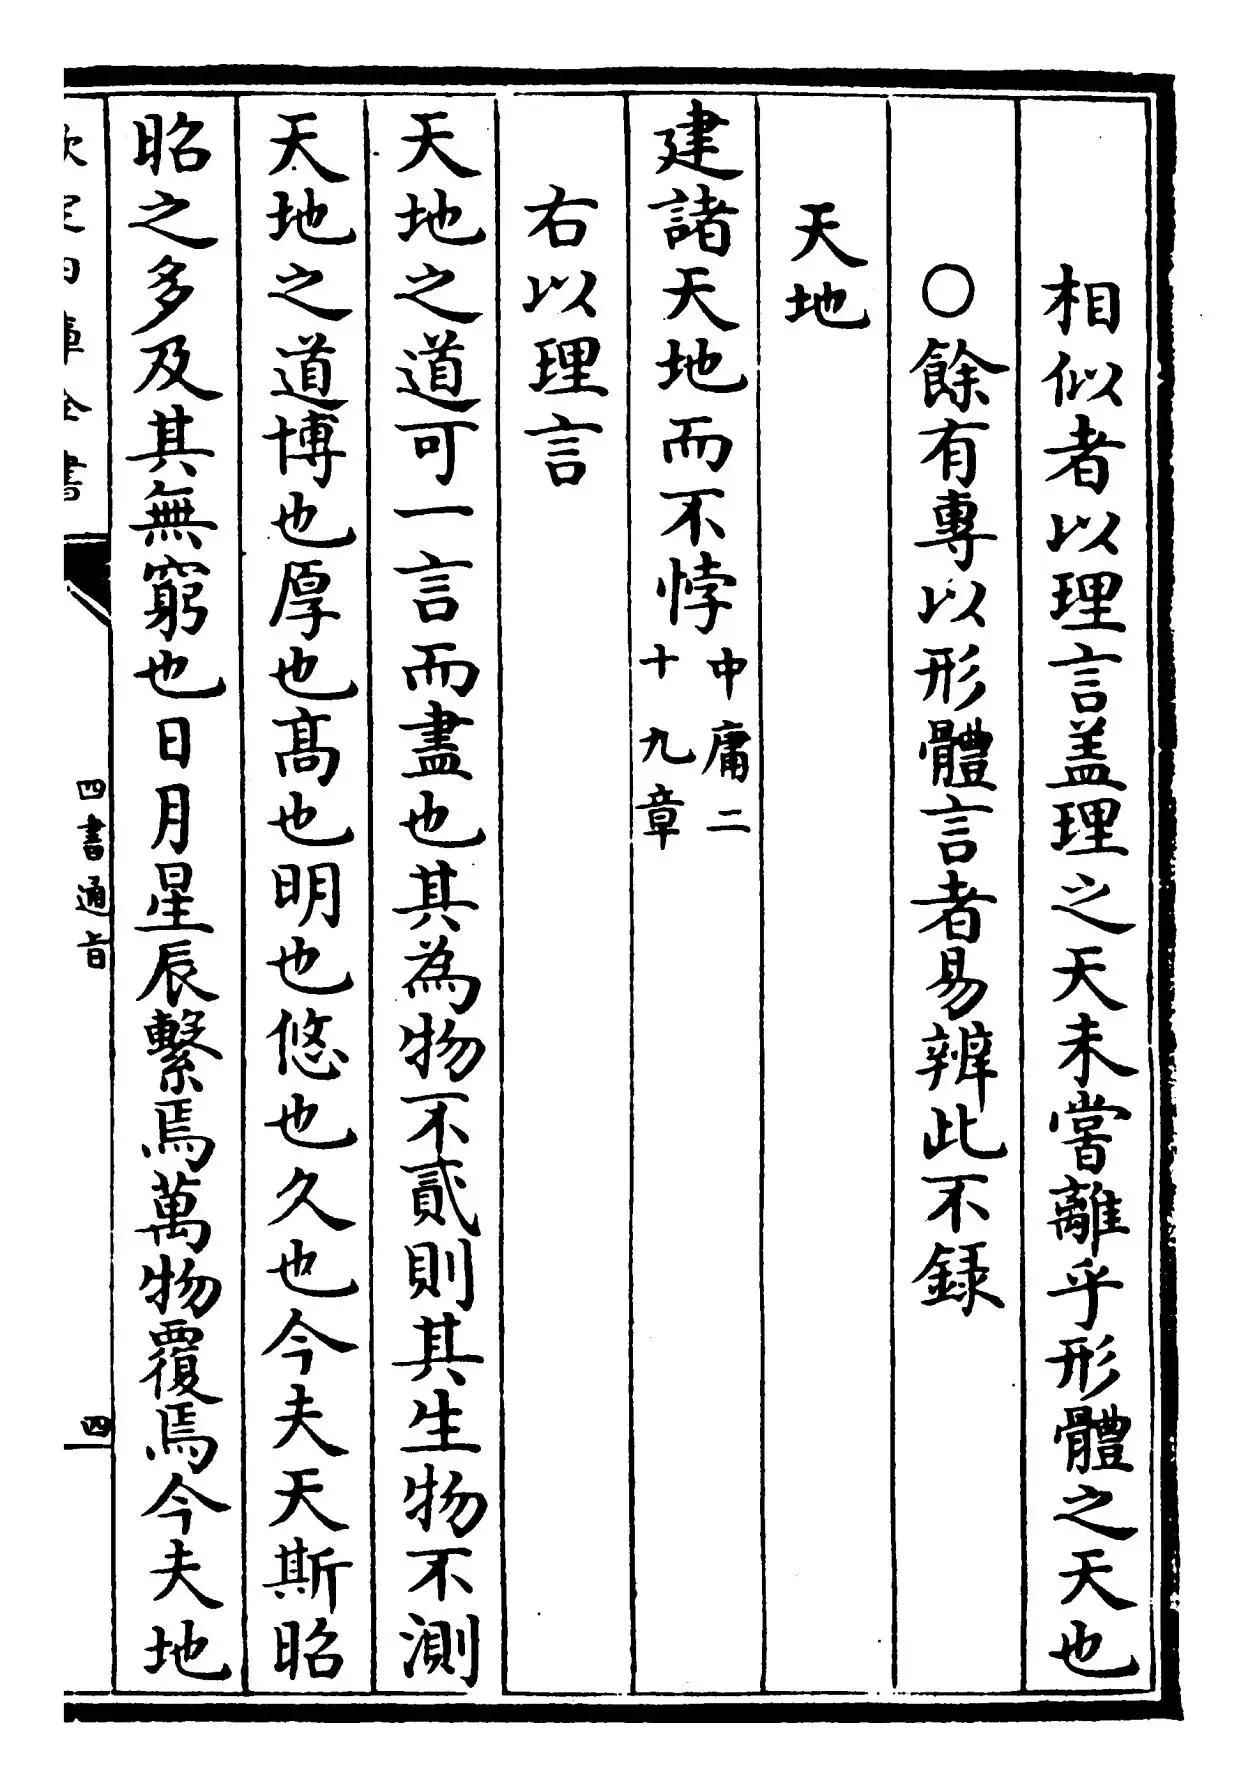 相似者以理言盖理之天未嘗離乎形體之天也
〇餘有專以形體言者易辨此不録
天地
建諸天地而不悖中庸二十九章
右以理言
天地之道可一言而盡也其為物不貳則其生物不測
天地之道博也厚也髙也明也悠也久也今夫天斯昭
昭之多及其無窮也日月星辰繫焉萬物覆焉今夫地
欽定四庫全書
四書通旨
四